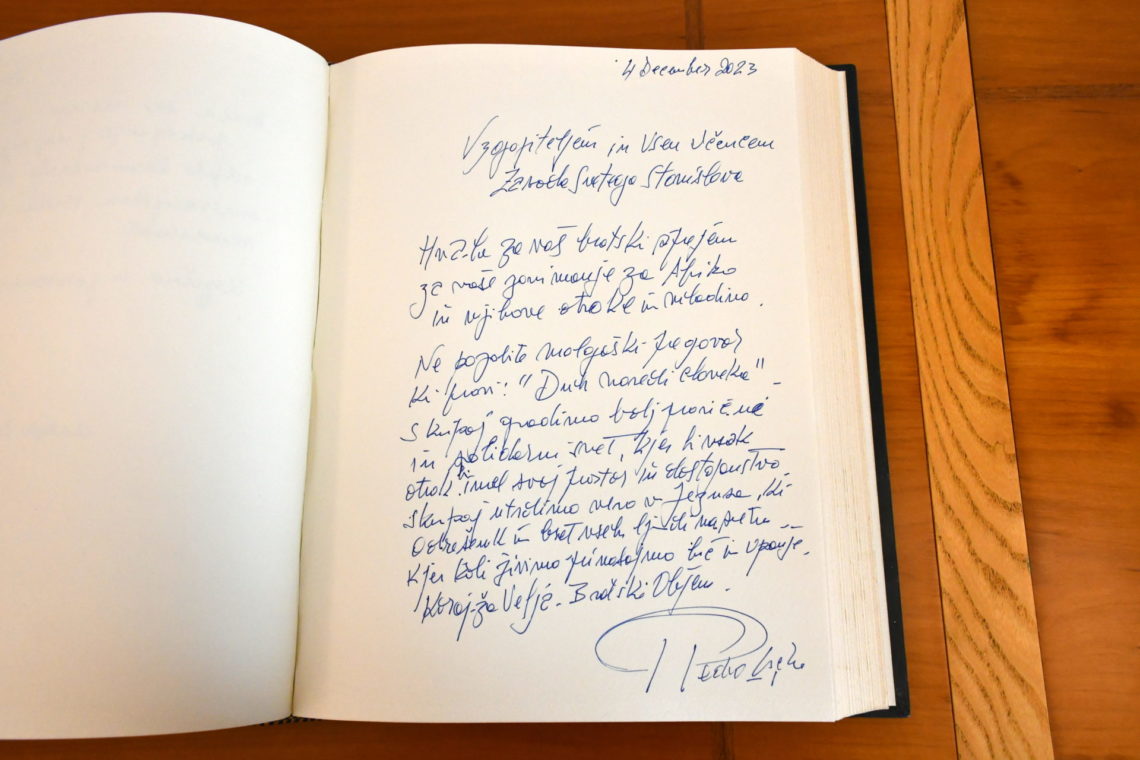 4 December 2023
Vzgojiteljem in Vsem Učencem
Zavoda Svetega Stanislava
Hvala za vaš bratski sprejem
za vaše zanimanje za Afriko
in njihove otroke in mladino.
Ne pozabite malgaški pregovor
ki pravi: "Duh naredi človeka" -
Skupaj gradimo bolj pravične
in solidarni svet, kjer bi vsak
otrok imel svoj prostor in dostojanstvo.
Skupaj utrdimo vero v Jezusa, ki
Odrešenik in brat vseh ljudi na svetu -
Kjer koli živimo prinašajmo luč in upanje.
Korajža Velja. Bratski Objem.
Pedro